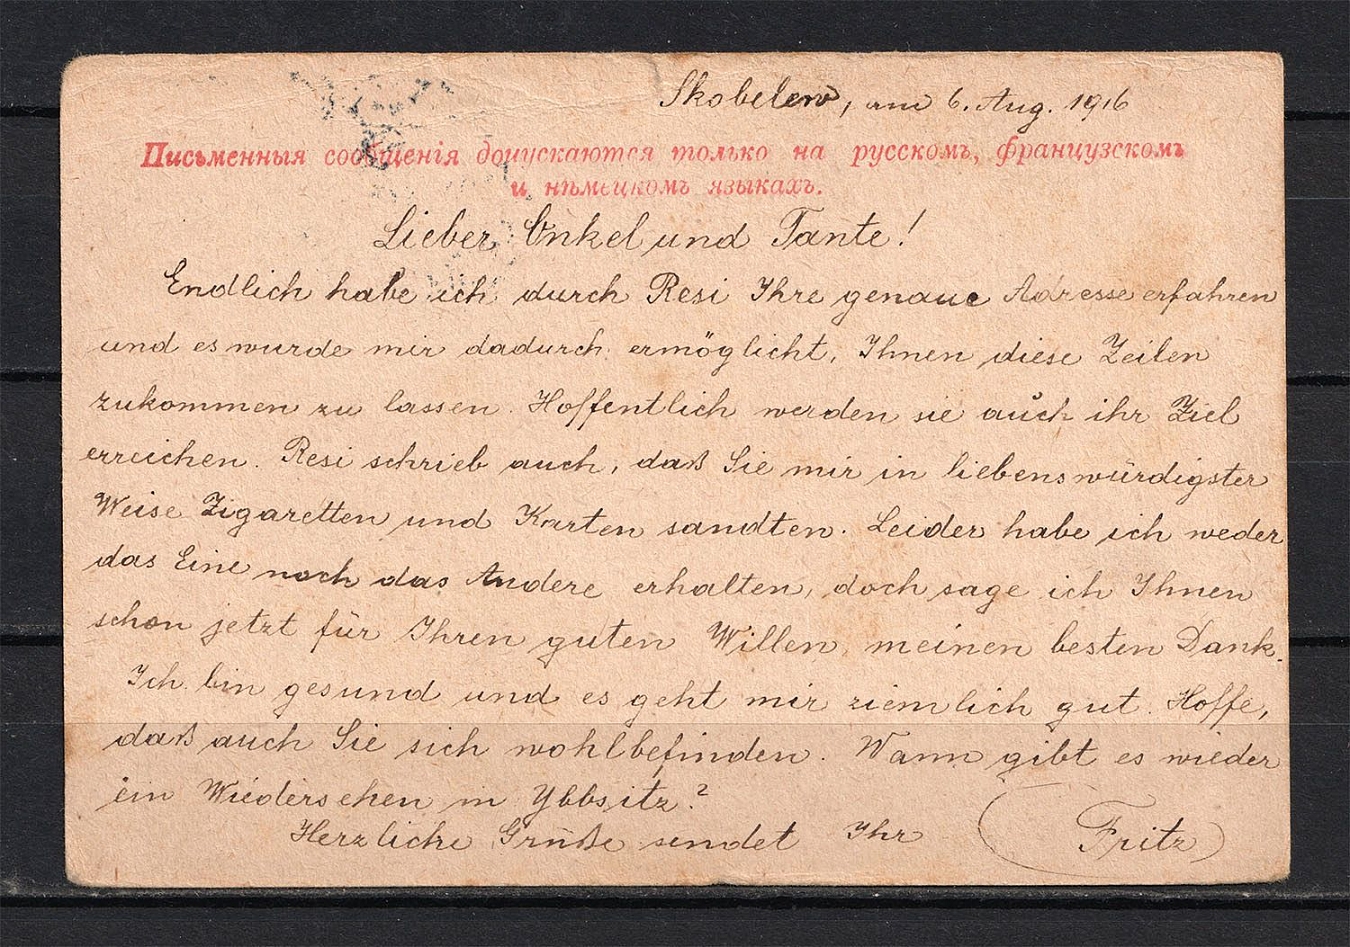 Skobelew, am 6. Aug. 1916
Письменныя сообщенія допускаются только на русскомъ, французскомъ
и нѣмецкомъ языкахъ.
Lieber Onkel und Tante!
Endlich habe ich durch Resi Ihre genaue Adresse erfahren
und es wurde mir dadurch ermöglicht, Ihnen diese Zeilen
zukommen zu lassen. Hoffentlich werden sie auch ihr Ziel
erreichen. Resi schrieb auch, daß Sie mir in liebenswürdigster
Weise Zigaretten und Karten sandten. Leider habe ich weder
das Eine noch das Andere erhalten, doch sage ich Ihnen
schon jetzt für Ihren guten Willen meinen besten Dank.
Ich bin gesund und es geht mir ziemlich gut. Hoffe,
daß auch Sie sich wohlbefinden. Wann gibt es wieder
ein Wiedersehen in Ybbsitz?
Herzliche Grüße sendet Ihr Fritz